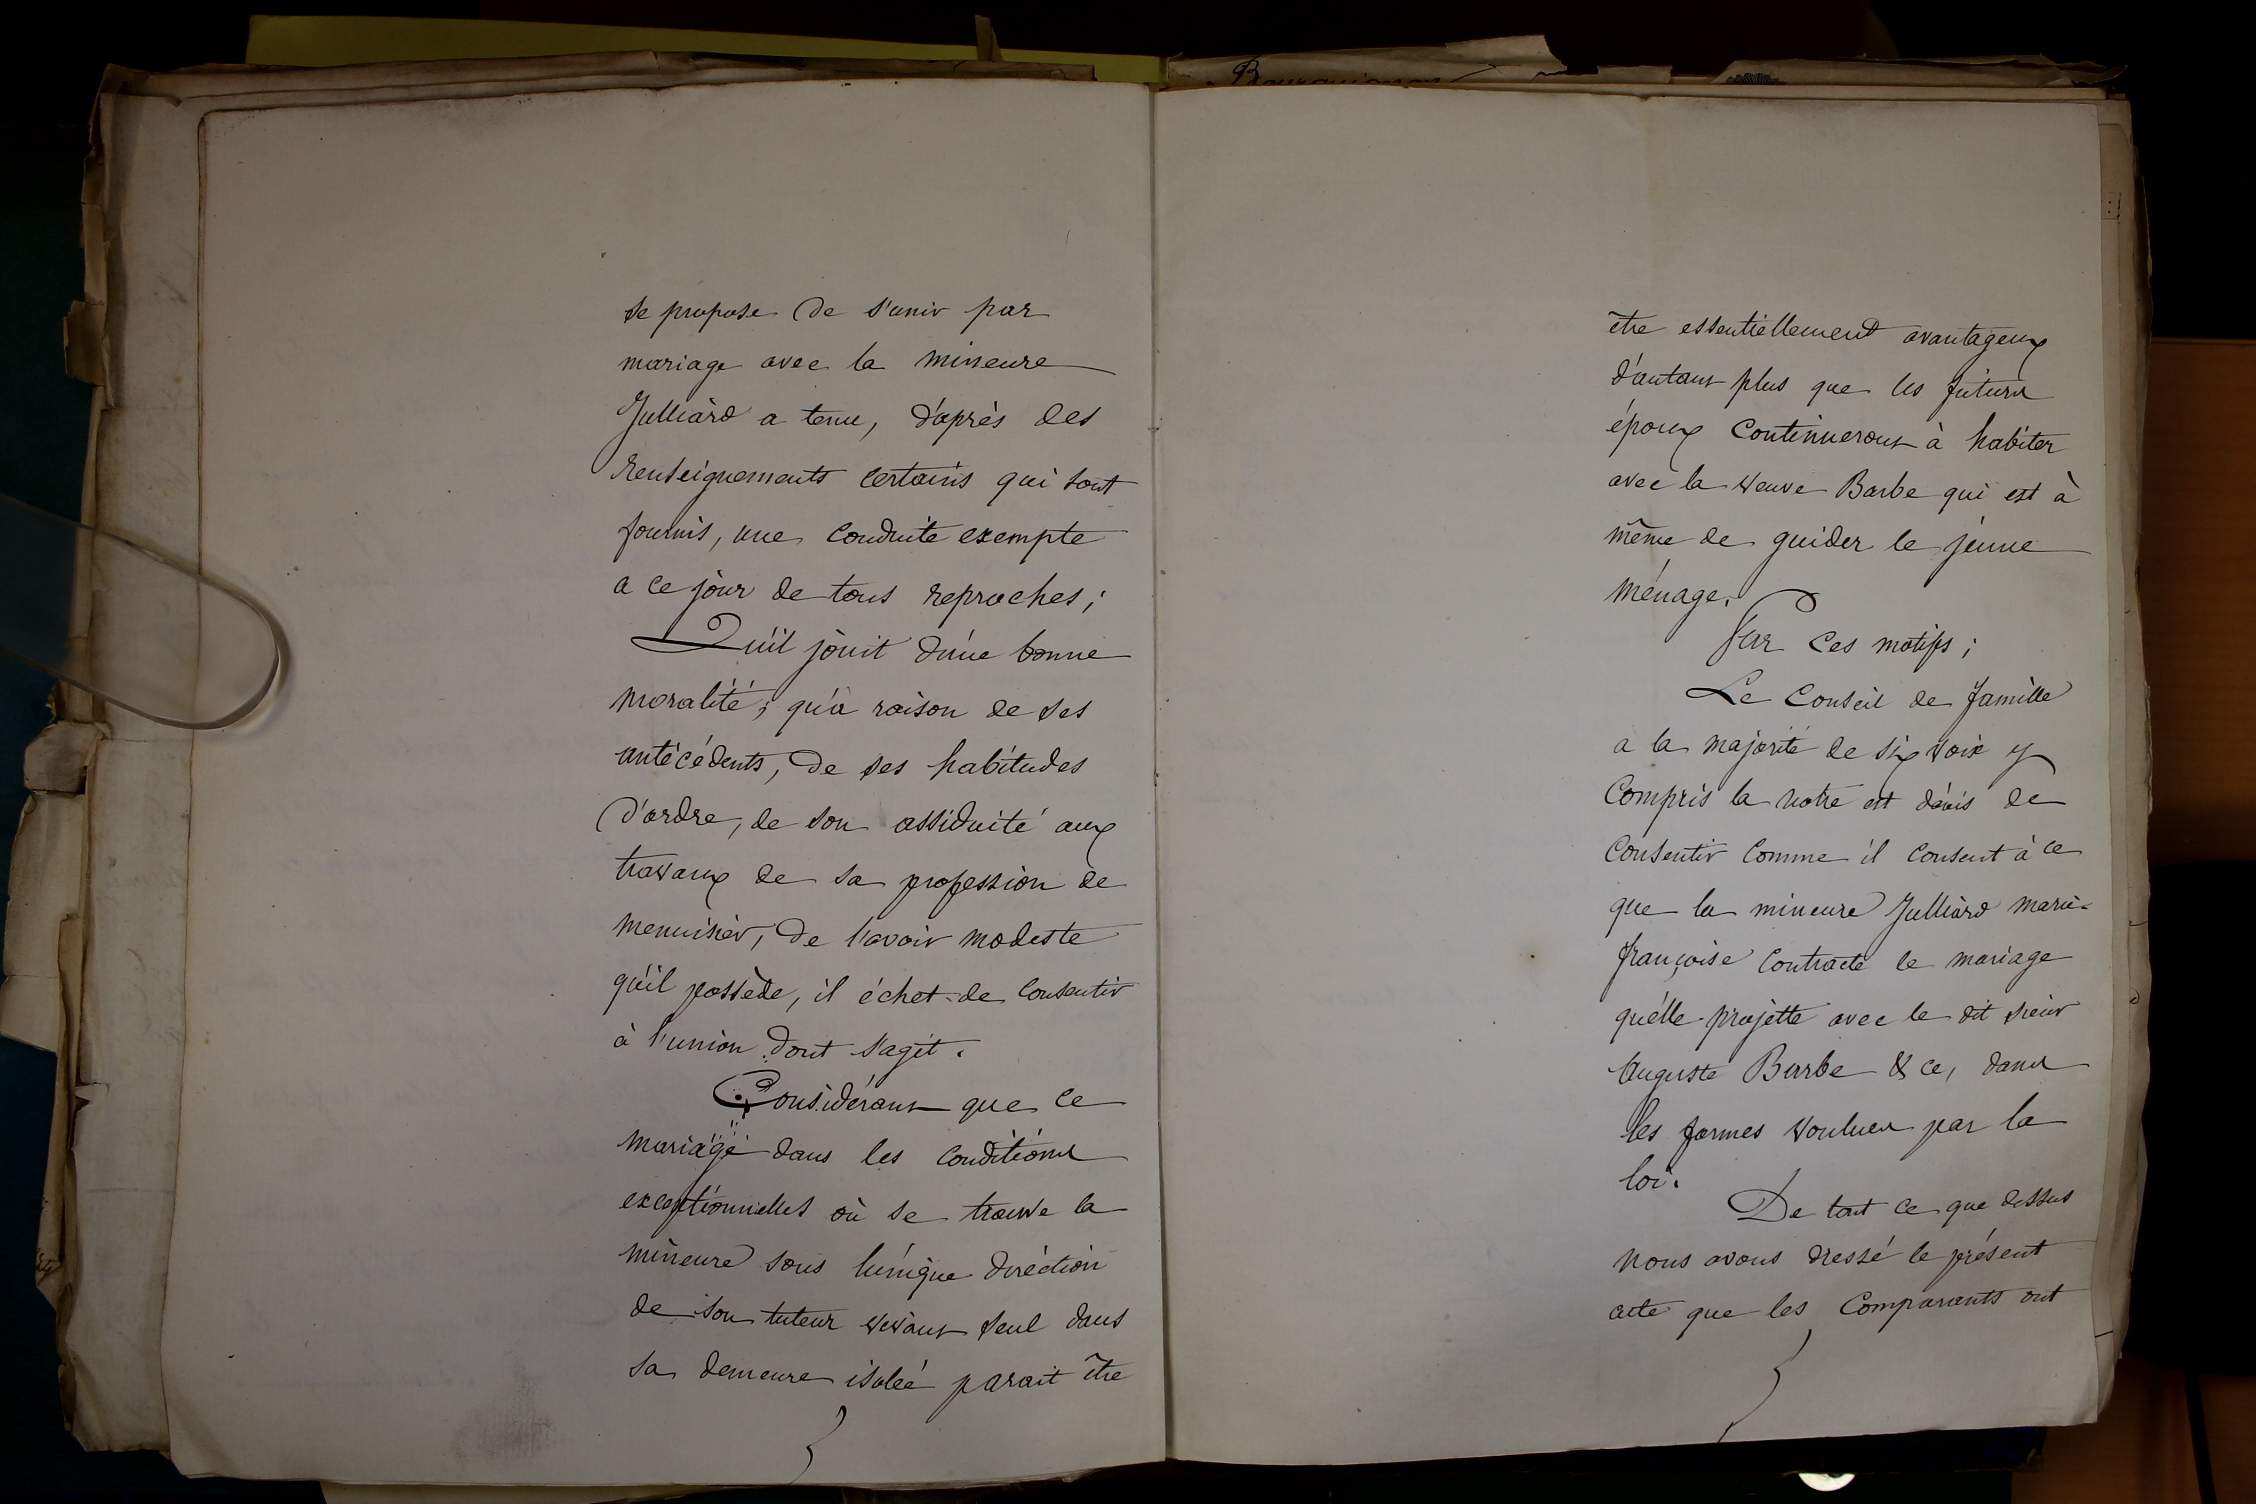 se propose de s'unir par
mariage avec la mineure
Julliard a tenu, d'après des
renseignements certains qui sont
fournis, une conduite exempte
a ce jour de tous reproches;
Qu'il jouit d'une bonne
moralité; qu'à raison de ses
antécédents, de ses habitudes
d'ordre, de son assiduité aux
travaux de sa profession de
menuisier, de l'avoir modeste
qu'il possède, il échet de consentir
à l'union dont s'agit.
Considérant que ce
mariage dans les conditions
exceptionnelles où se trouve la
mineure sous l'unique direction
de son tuteur vivant seul dans
sa demeure isolée parait être
être essentiellement avantageux
d'autant plus que les futurs
époux continueront à habiter
avec la veuve Barbe qui est à
même de guider le jeune
ménage.
Par ces motifs;
Le Conseil de famille
a la majorité de six voix y
compris la notre est d'avis de
consentir comme il consent à ce
que la mineure Julliard marie-
françoise contracte le mariage
qu'elle projette avec le dit sieur
Auguste Barbe & ce, dans
les formes voulues par la
loi.
De tout ce que dessus
nous avons dressé le présent
acte que les Comparants ont